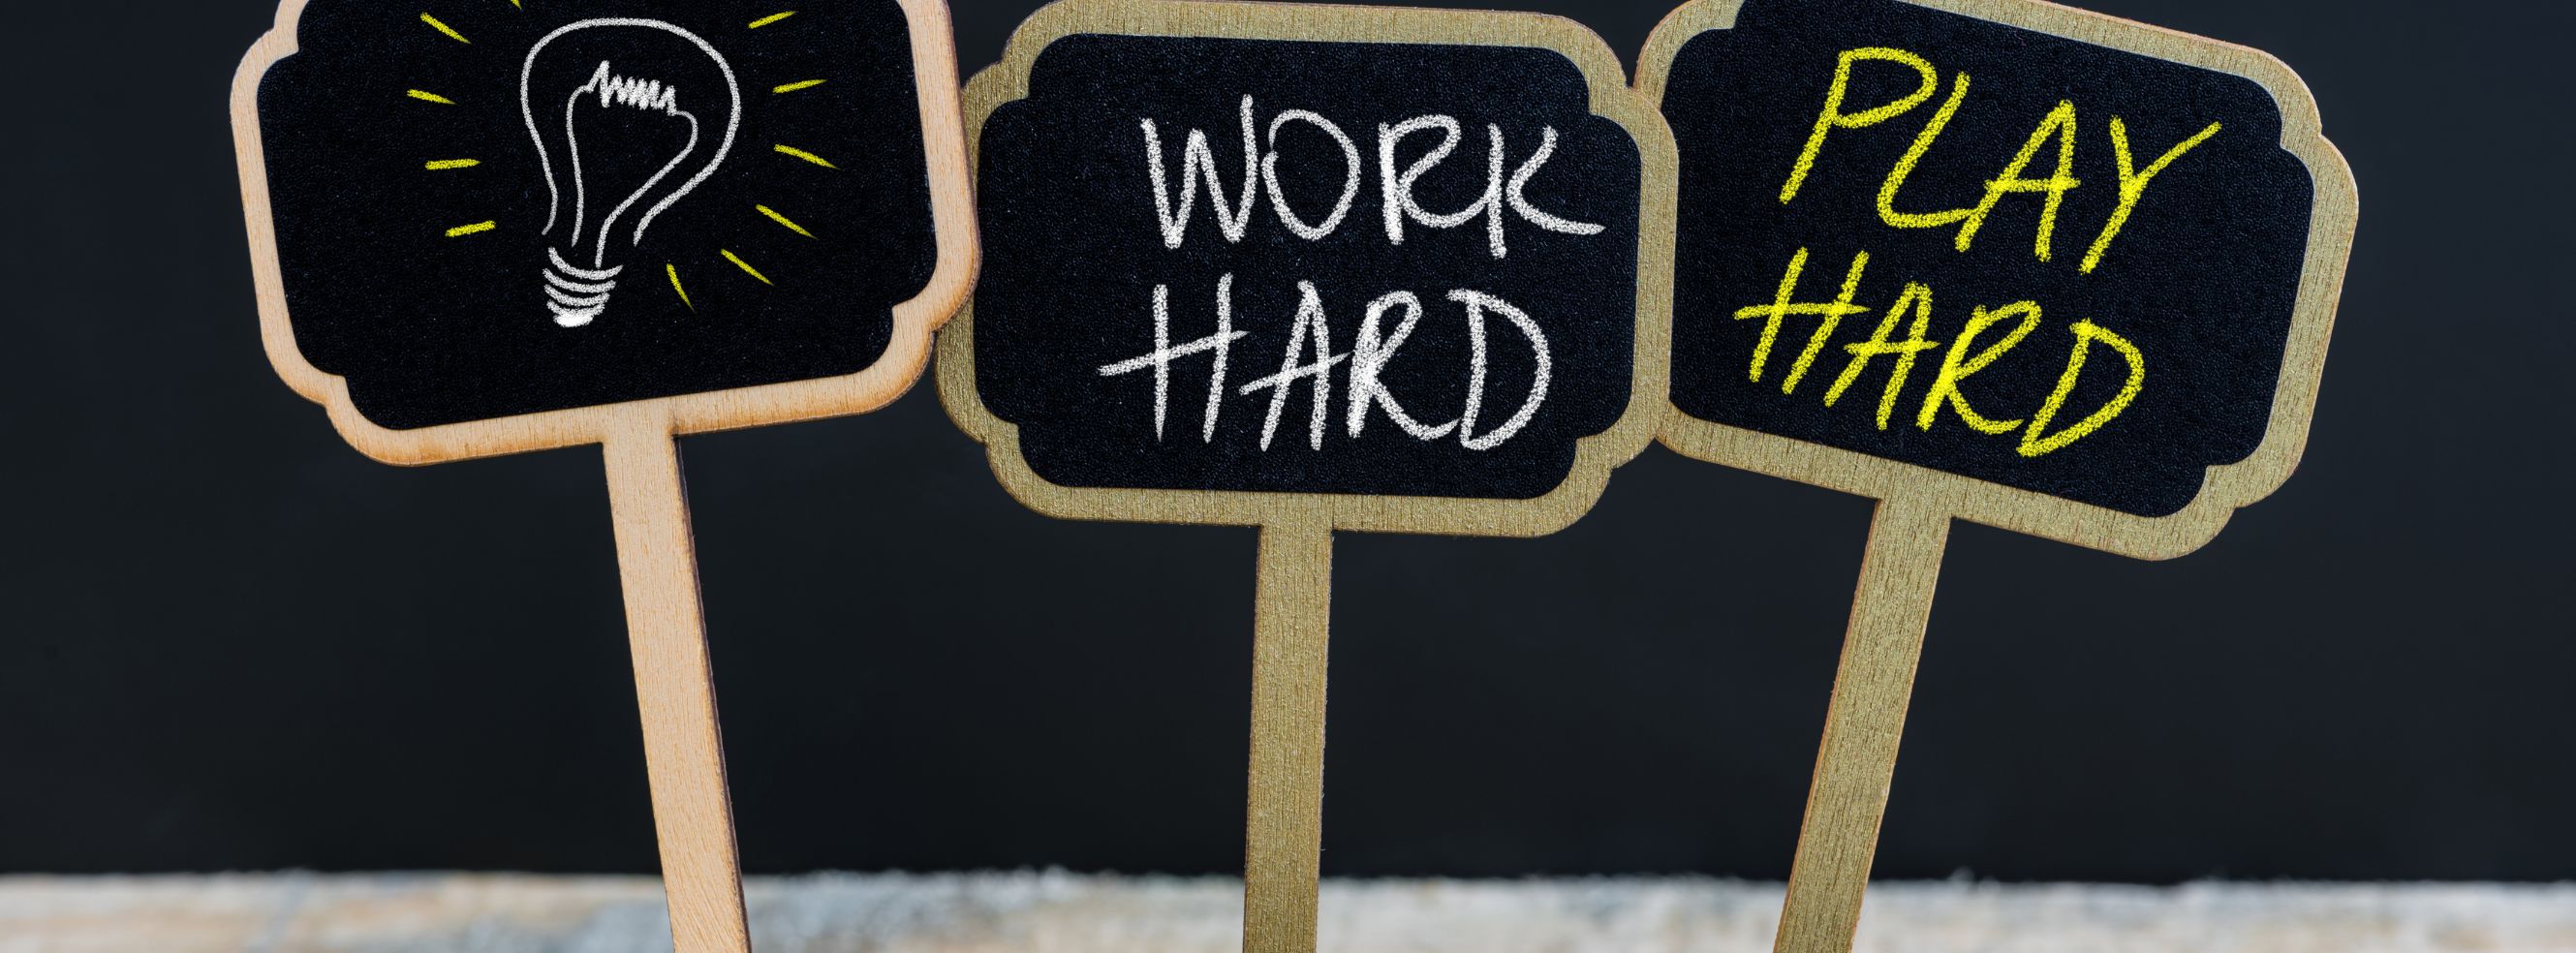 WORK
HARD
PLAY
HARD